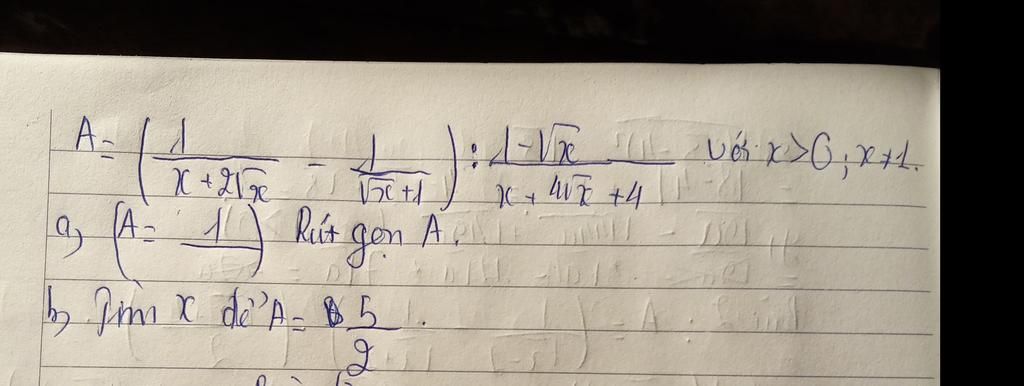 A = (1/(x + 2√x) - 1/(√x + 1)) : (1 - √x)/(x + 4√x + 4) với x > 0, x ≠ 1.
a, (A = 1/) Rút gọn A.
b, Tìm x để A = 5/2.